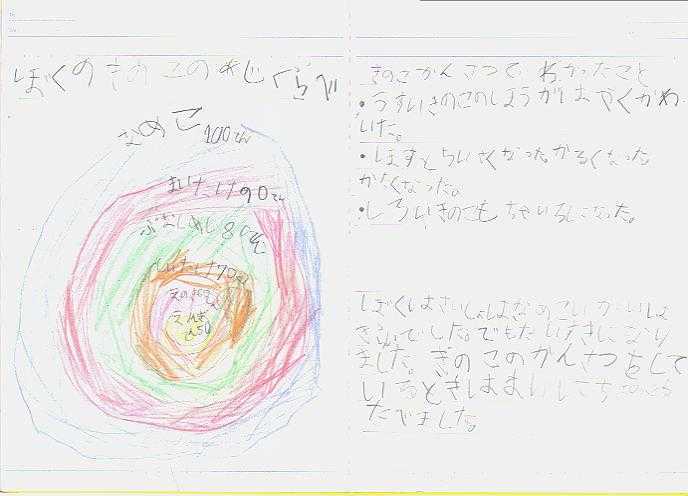 ぼくのきのこのあじくらべ
なめこ100てん
まいたけ90てん
ぶなしめじ80てん
しいたけ70てん
えのき60てん
えりんぎ
てん50
きのこかんさつで わかったこと
・うすいきのこのほうがはやくかわ
いた。
・ほすとちいさくなったかるくなった
かたくなった。
・しろいきのこもちゃいろになった。
ぼくはさいしょはなめこいがいは
きらいでした。でもだいすきになり
ました。きのこのかんさつをして
いるときはまいにち
たべました。